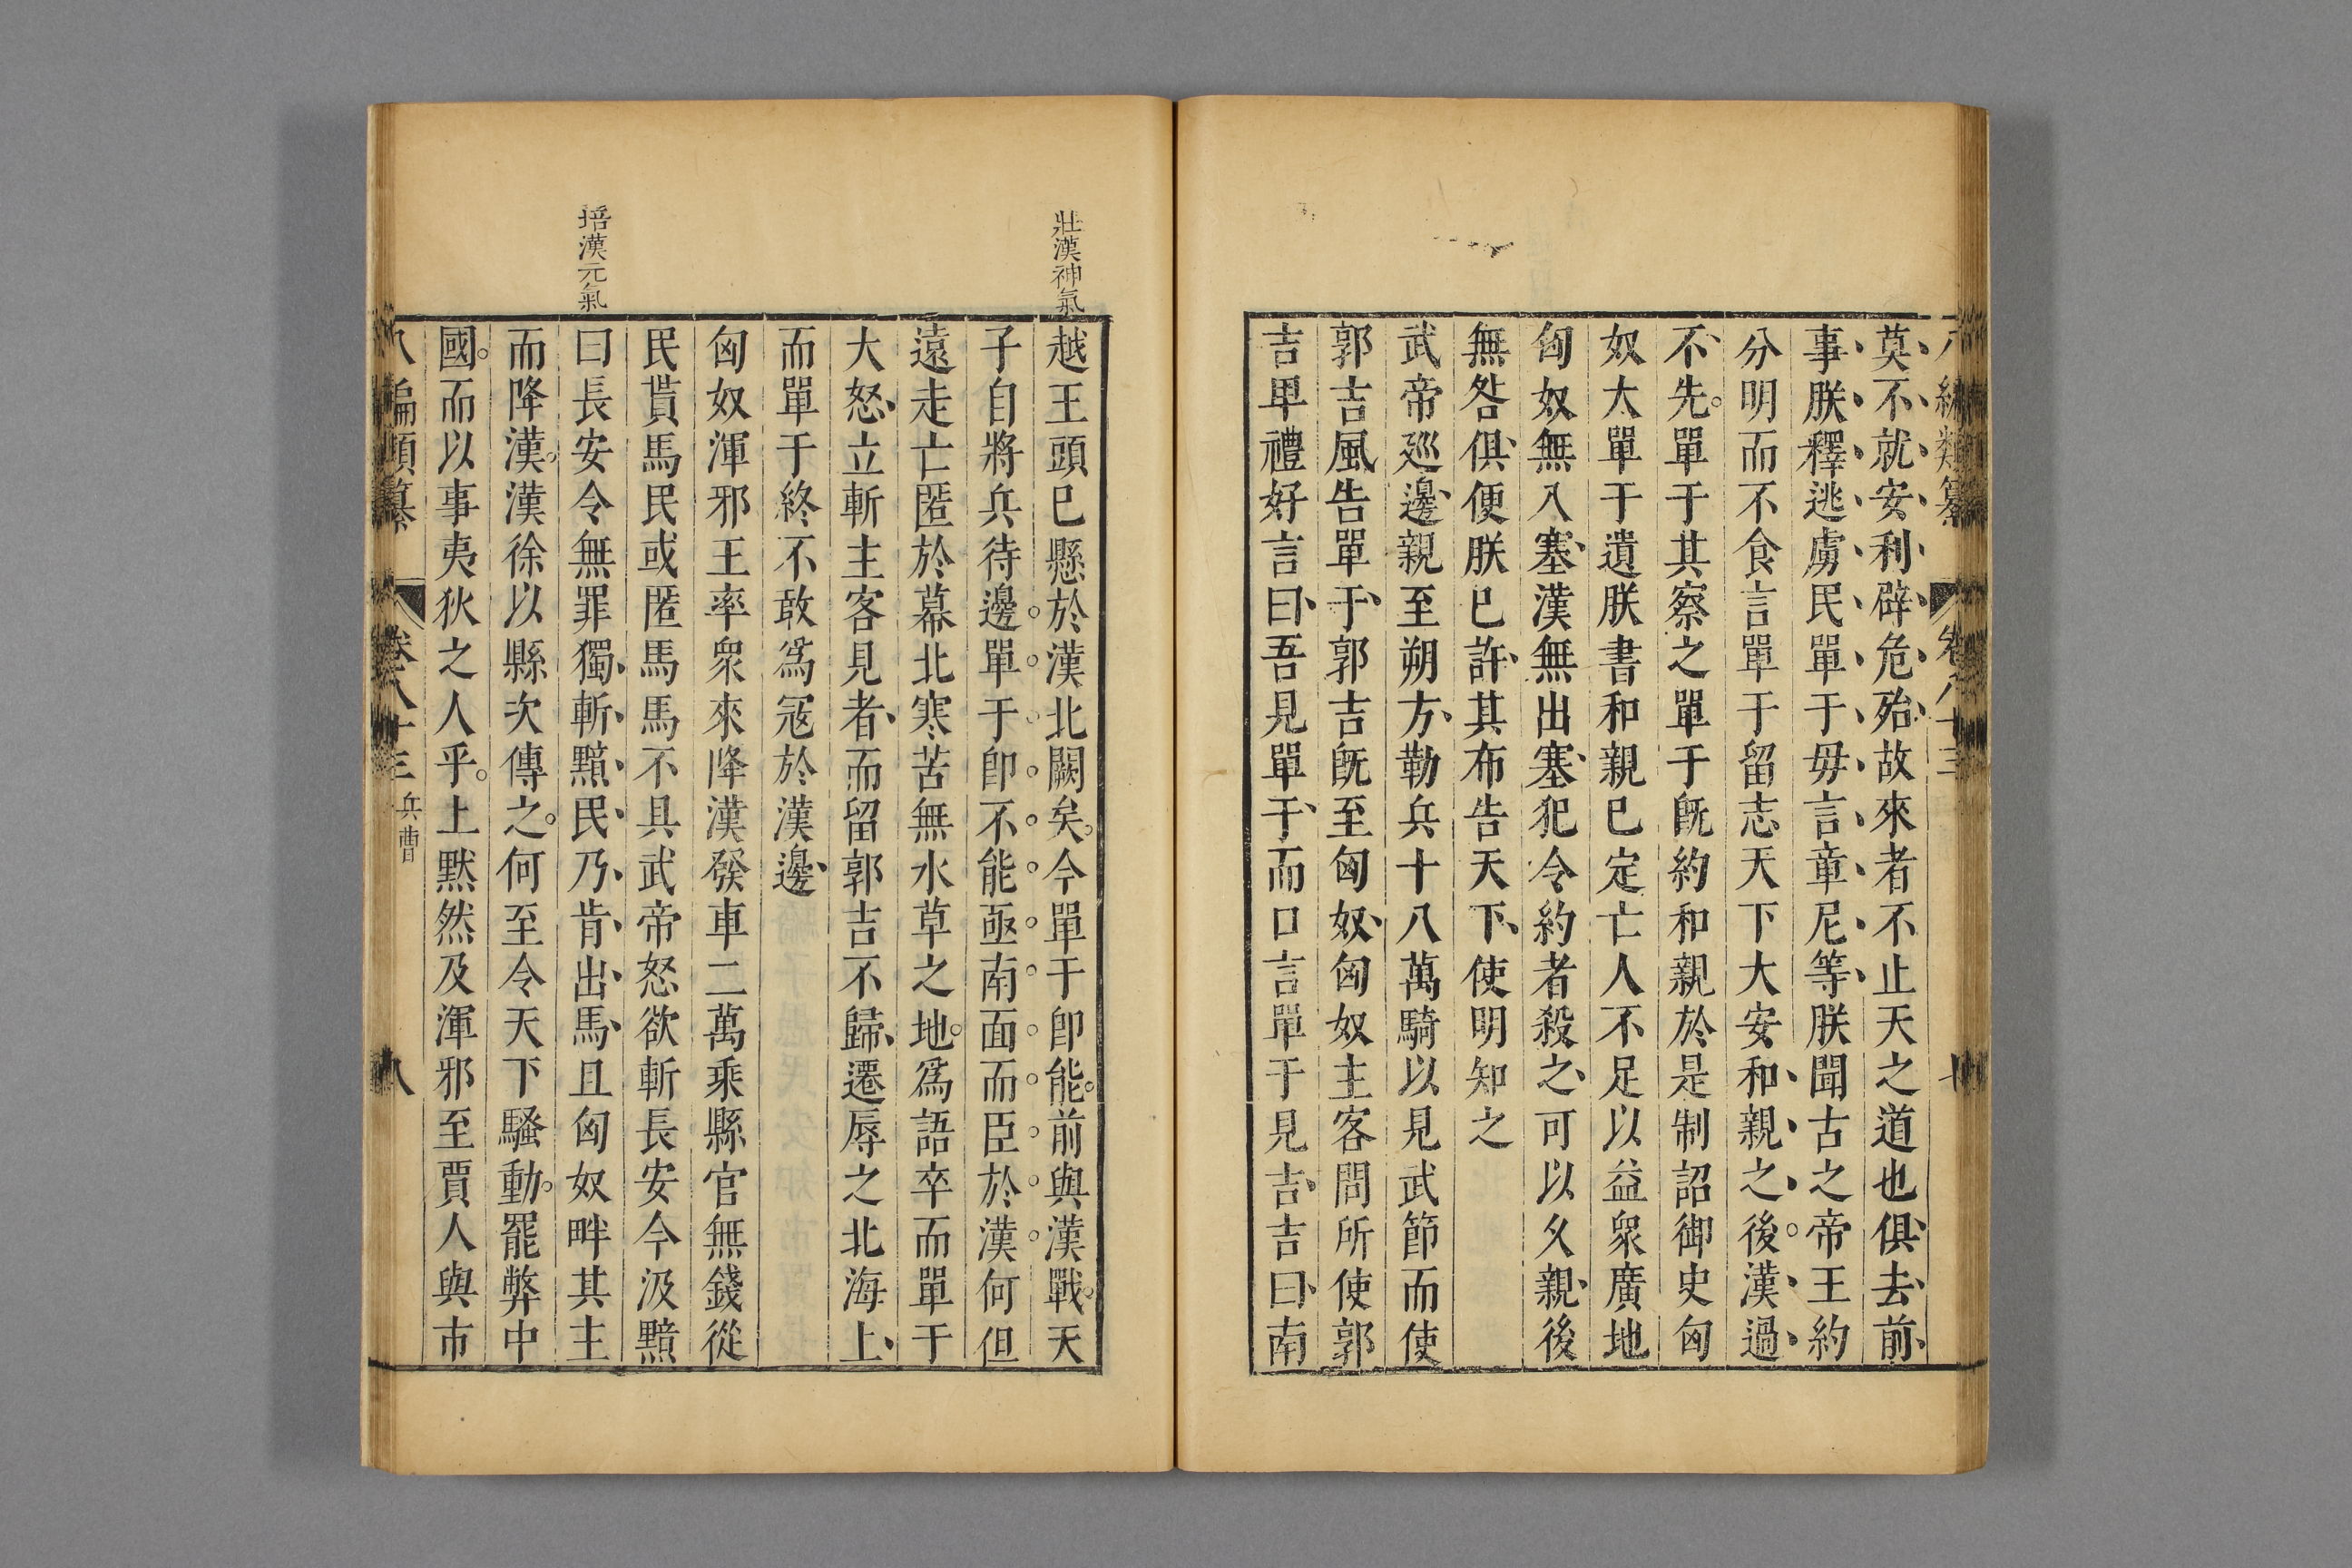 莫不就安利辟危殆故來者不止天之道也俱去前
事朕釋逃虜民單于毋言章尼等朕聞古之帝王約
分明而不食言單于留志天下大安和親之後漢過
不先單于其察之單于旣約和親於是制詔御史匈
奴大單于遺朕書和親已定亡人不足以益衆廣地
匈奴無入塞漢無出塞犯令約者殺之可以久親後
無咎俱便朕已許其布告天下使明知之
武帝廵邊親至朔方勒兵十八萬騎以見武節而使
郭吉風告單于郭吉旣至匈奴匈奴主客問所使郭
吉𤰞禮好言曰吾見單于而口言單于見吉吉曰南
壯漢神氣
越王頭已懸於漢北闕矣今單于卽能前與漢戰天
子自將兵待邊單于卽不能亟南面而臣於漢何但
遠走亡匿於幕北寒苦無水草之地爲語卒而單于
大怒立斬主客見者而留郭吉不歸遷辱之北海上
而單于終不敢爲冦於漢邊
匈奴渾邪王率衆來降漢發車二萬乘縣官無錢從
民貰馬民或匿馬馬不具武帝怒欲斬長安令汲黯
培漢元氣
曰長安令無罪獨斬黯民乃肯出馬且匈奴畔其主
而降漢漢徐以縣次傳之何至令天下騷動罷弊中
國而以事夷狄之人乎上默然及渾邪至賈人與市
八編類纂 卷八十三 兵曹 八